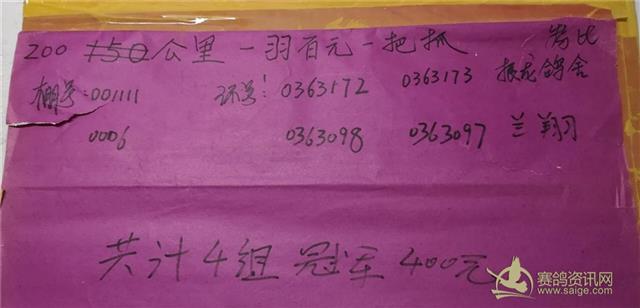 200 150公里一羽百元一把抓
棚号:001111 环号:0363172 0363173 振龙鸽舍
0006 0363098 0363097 兰翔
共计4组 冠军400元
赛鸽资讯网
www.saige.com